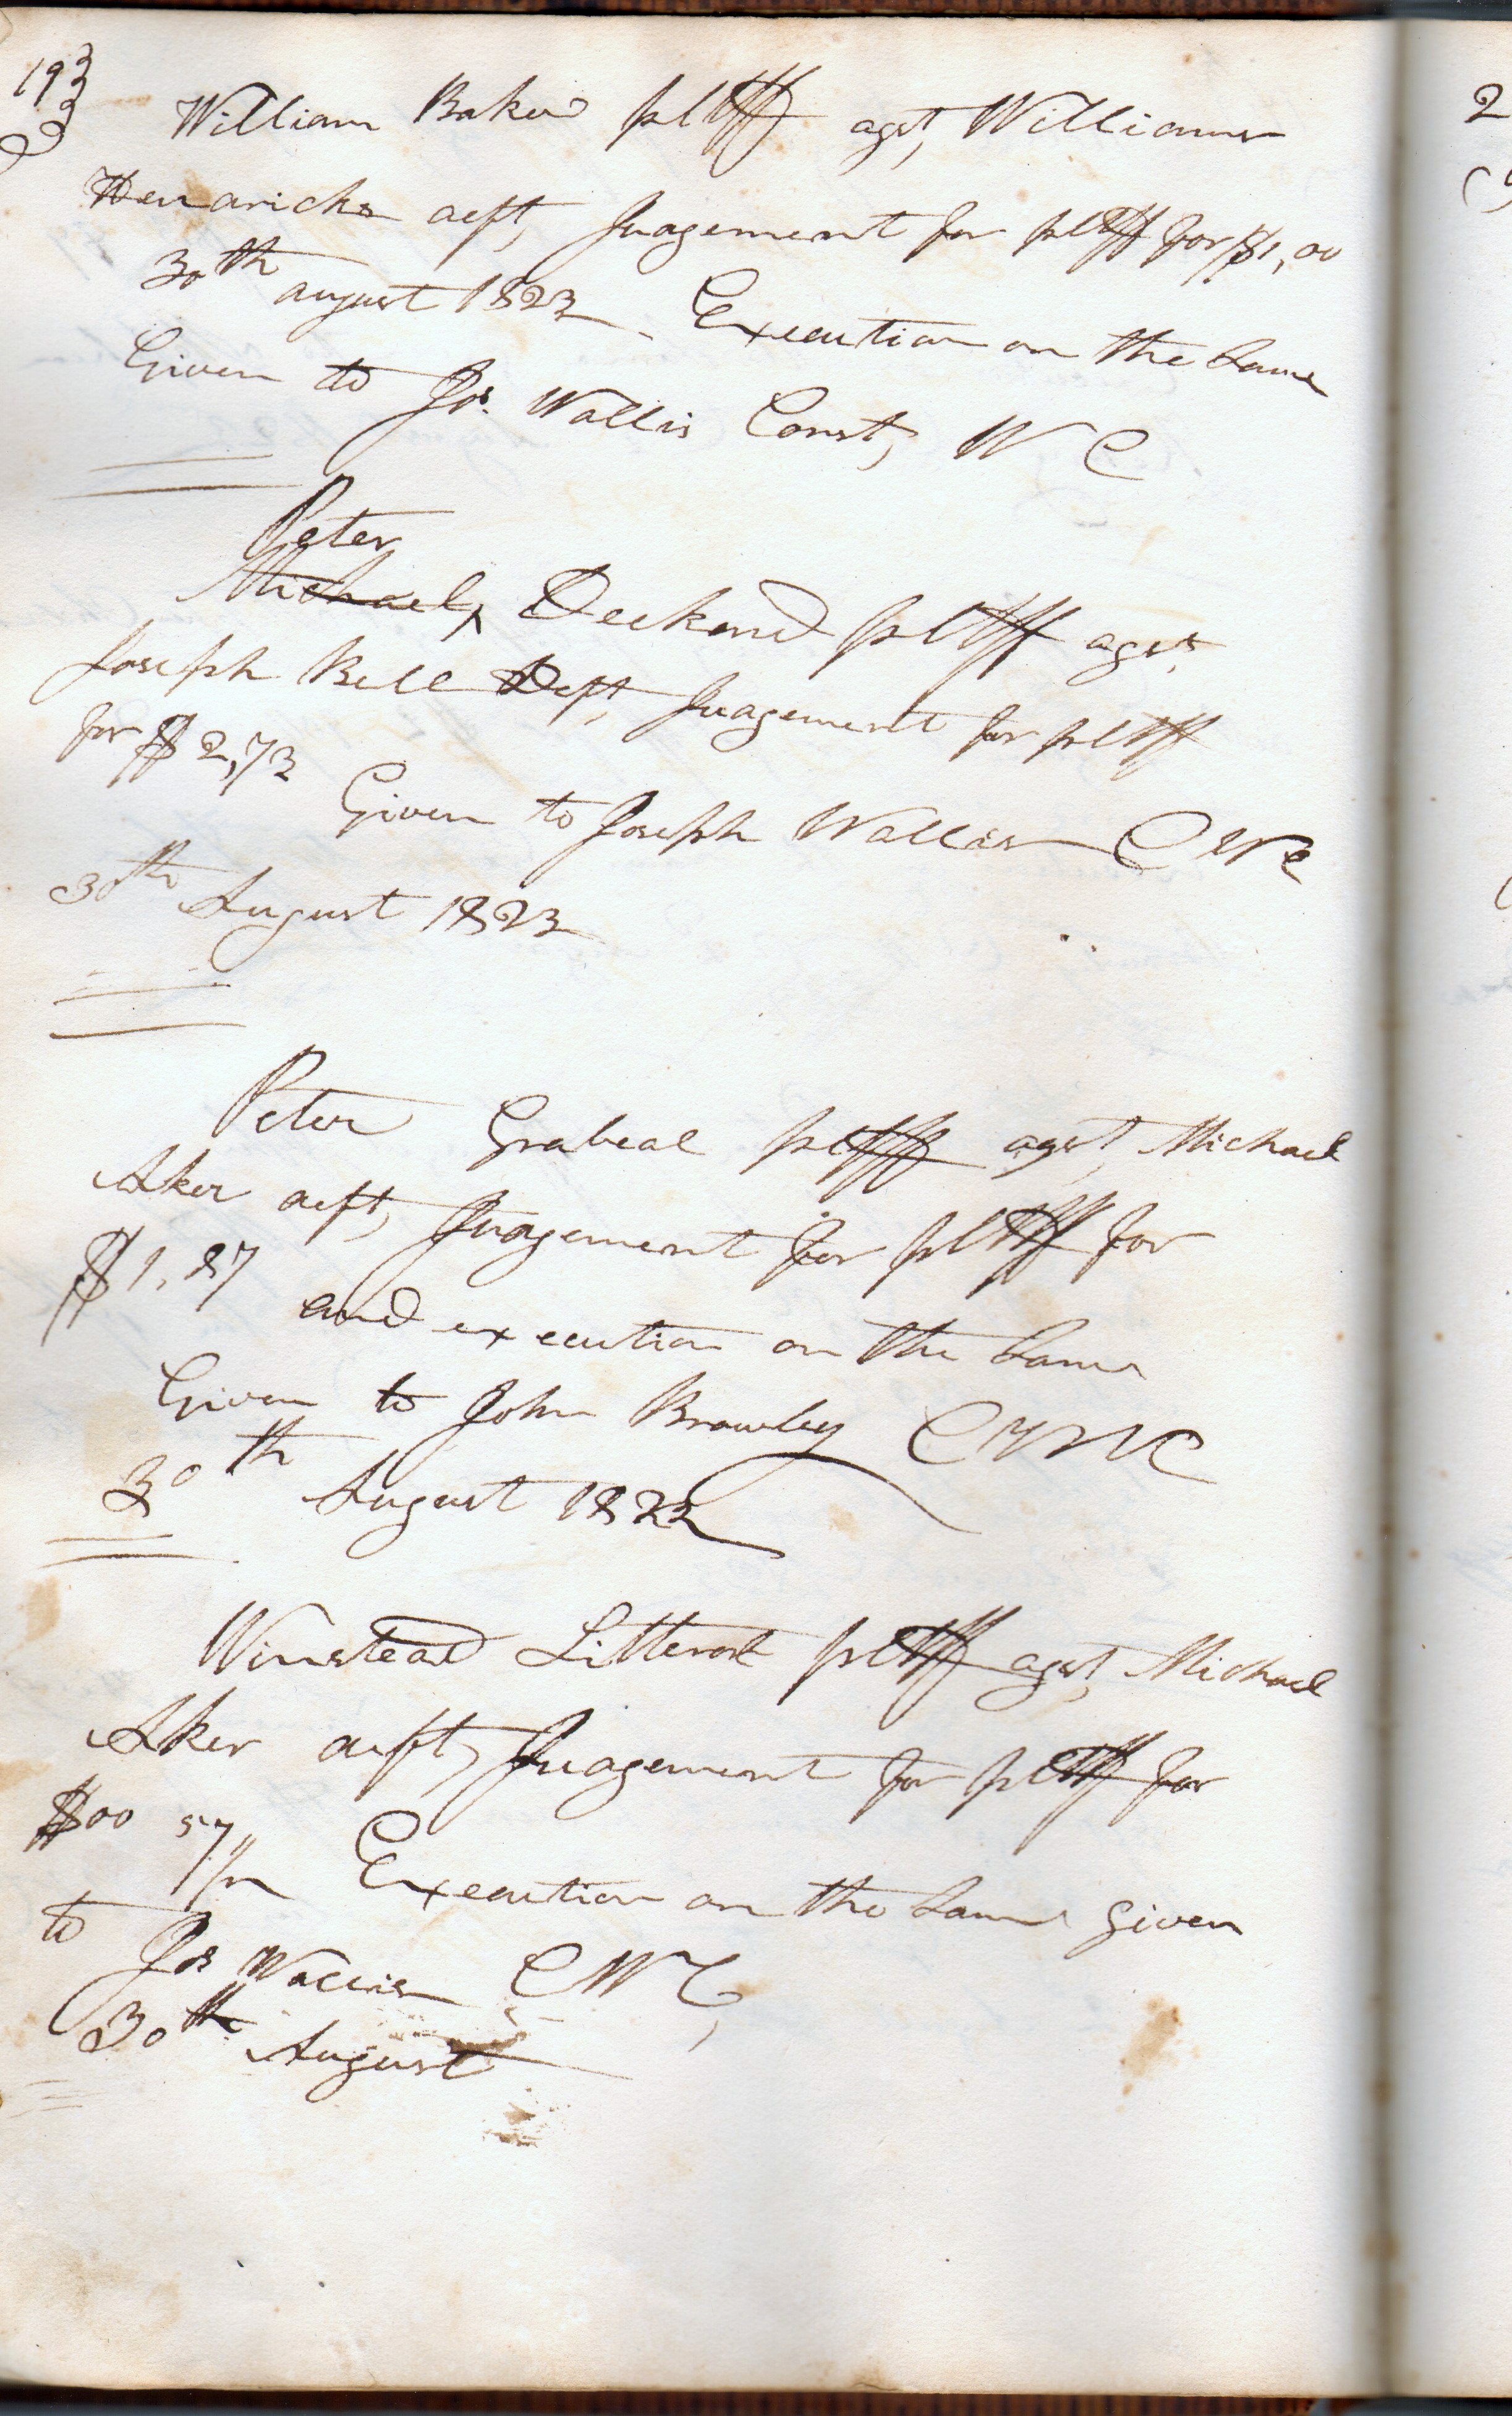 193
William Baker pltff agst, William
Hendricks deft, Judgement for pltff for $1,00
30th august 1823 Execution on the Same
Given to Jos. Wallis Const, W C
Peter
Michael, Deckard pltff agst,
Joseph Bell Deft, Judgement for pltff
for $2,73 Given to Joseph Wallis C W C
30th August 1823
Peter Grabeal pltff agst, Michael
Aker deft, Judgement for pltff for
$1,87 and execution on the Same
Given to John Brawley C W C
30th August 1823
Winstead Litteral pltff agst, Michael
Aker deft, Judgement for pltff for
$00 57 Execution on the Same given
to Jos Wallis C W C,
30th August
2